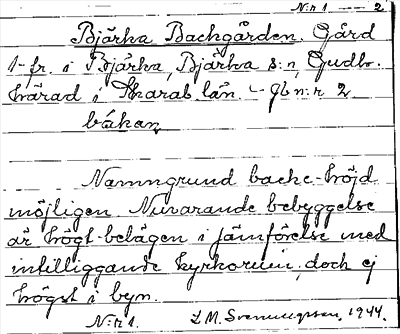 N:r 1 — 2
Bjärka Backgården. Gård
1-fr. i Bjärka, Bjärka s:n, Gudh.
härad i Skarab. län. - Jb n:r 2
båkaŋ
Namngrund backe-höjd
möjligen. Nuvarande bebyggelse
är högt belägen i jämförelse med
intilliggande kyrkoruin, doch ej
högst i byn.
N:r 1. L M. Svenungsson, 1944.